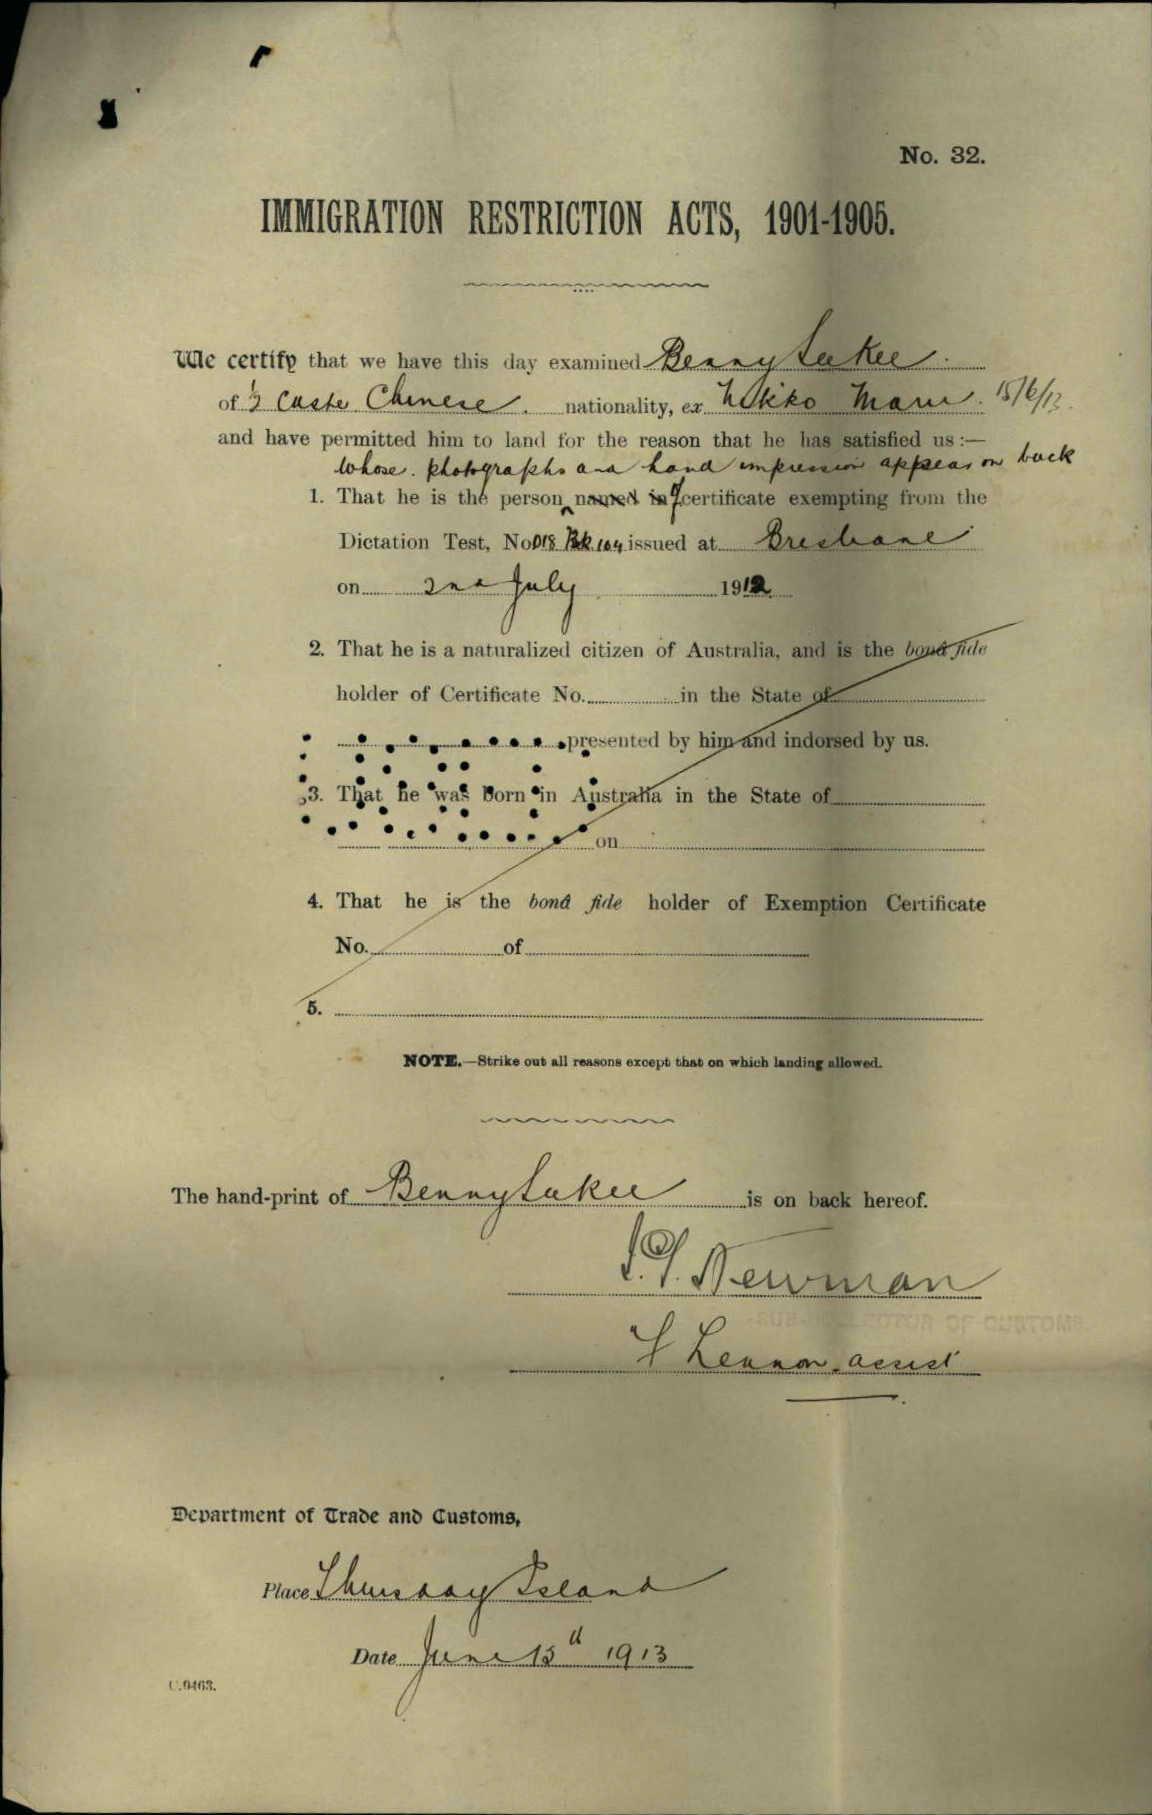 No. 32.
IMMIGRATION RESTRICTION ACTS, 1901-1905.
We certify that we have this day examined Benny Lee Kee.
of ½ Caste Chinese. nationality, ex Nikko Maru. 15/6/13.
and have permitted him to land for the reason that he has satisfied us :—
whose photographs and hand impression appear on back
1. That he is the person named in of certificate exempting from the
Dictation Test, No 018 Bk 104 issued at Brisbane
on 2nd July 1912
2. That he is a naturalized citizen of Australia, and is the bonâ fide
holder of Certificate No. in the State of
presented by him and indorsed by us.
3. That he was born in Australia in the State of
on
4. That he is the bonâ fide holder of Exemption Certificate
No. of
5.
NOTE.—Strike out all reasons except that on which landing allowed.
The hand-print of Benny Lee Kee is on back hereof.
Newman
Lennon assist
OF CUSTOMS
Department of Trade and Customs,
Place Thursday Island
Date June 15th 1913
C.9463.